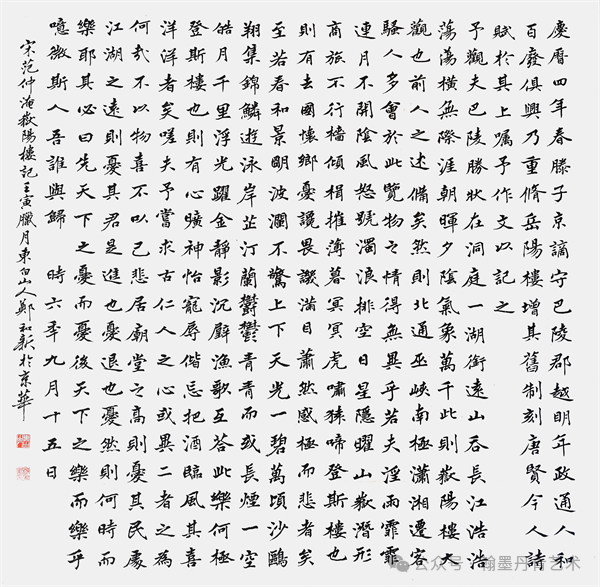 慶曆四年春滕子京謫守巴陵郡越明年政通人和
百廢俱興乃重脩岳陽樓增其舊制刻唐賢今人詩
賦於其上囑予作文以記之
予觀夫巴陵勝狀在洞庭一湖銜遠山吞長江浩浩
蕩蕩橫無際涯朝暉夕陰氣象萬千此則嶽陽樓大
觀也前人之述備矣然則北通巫峽南極瀟湘遷客
騷人多會於此覽物之情得無異乎若夫淫雨霏霏
連月不開陰風怒號濁浪排空日星隱曜山嶽潛形
商旅不行檣傾楫摧薄暮冥冥虎嘯猿啼登斯樓也
則有去國懷鄉憂讒畏譏滿目蕭然感極而悲者矣
至若春和景明波瀾不驚上下天光一碧萬頃沙鷗
翔集錦鱗遊泳岸芷汀蘭鬱鬱青青而或長煙一空
皓月千里浮光躍金靜影沉璧漁歌互答此樂何極
登斯樓也則有心曠神怡寵辱偕忘把酒臨風其喜
洋洋者矣嗟夫予嘗求古仁人之心或異二者之為
何哉不以物喜不以己悲居廟堂之高則憂其民處
江湖之遠則憂其君是進也憂退也憂然則何時而
樂耶其必曰先天下之憂而憂後天下之樂而樂乎
噫微斯人吾誰與歸 時六年九月十五日
宋范仲淹嶽陽樓記壬寅臘月東白山人鄭和新於京華
公众号 · 翰墨丹青艺术